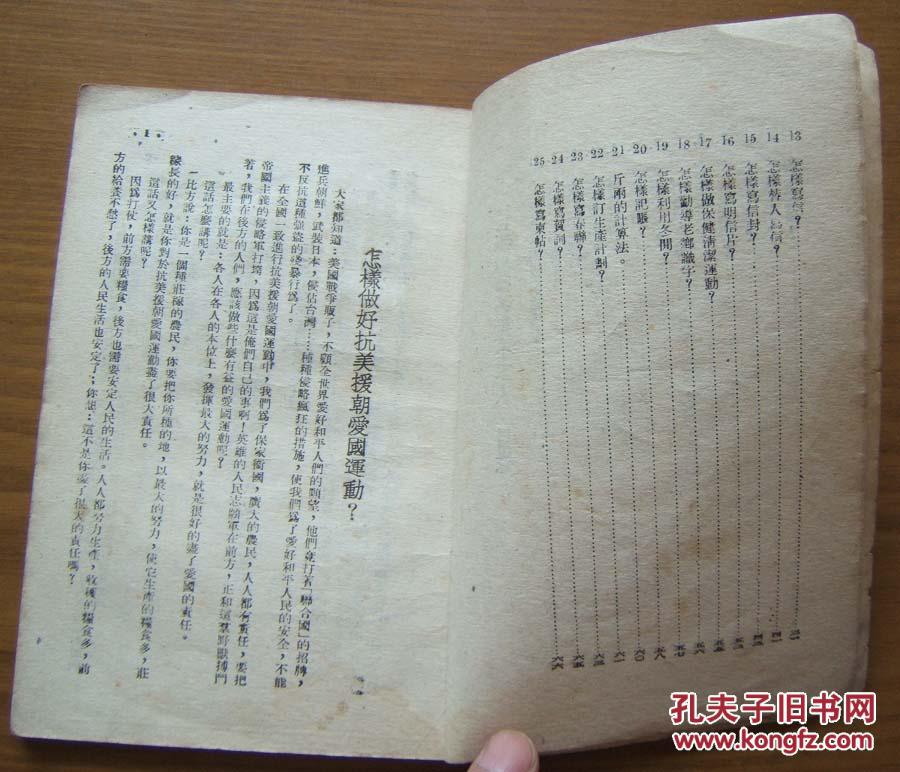 13 怎樣寫信？……三一
14 怎樣替人寫信？……四一
15 怎樣寫信封？……四三
16 怎樣寫明信片？……五三
17 怎樣做保健清潔運動？……五五
18 怎樣勸導老鄉識字？……五六
19 怎樣利用冬閒？……五七
20 怎樣記賬？……五八
21 斤兩的計算法。……六〇
22 怎樣訂生產計劃？……六一
23 怎樣寫春聯？……六三
24 怎樣寫賀詞？……六五
25 怎樣寫柬帖？……六六
怎樣做好抗美援朝愛國運動？
大家都知道：美國戰爭販子，不顧全世界愛好和平人們的願望，他們竟打着「聯合國」的招牌，
進兵朝鮮，武裝日本，侵佔台灣……種種侵略瘋狂的措施，使我們爲了愛好和平人民的安全，不能
不反抗這種强盜的殘暴行爲了。
在全國一致進行抗美援朝愛國運動中，我們爲了保家衞國，廣大的農民，人人都有責任，要把
帝國主義的侵略軍打垮，因爲這是俺們自己的事啊！英雄的人民志願軍在前方，正和這羣野獸搏鬥
着，我們在後方的人們，應該做些什麼有益的愛國運動呢？
最主要的就是：各人在各人的本位上，發揮最大的努力，就是很好的盡了愛國的責任。
這話怎麼講呢？
比方說：你是一個種莊稼的農民，你要把你所種的地，以最大的努力，使它生產的糧食多，莊
稼長的好，就是你對於抗美援朝愛國運動盡了很大責任。
這話又怎樣講呢？
因爲打仗，前方需要糧食，後方也需要安定人民的生活。人人都努力生產，收穫的糧食多，前
方的給養不愁了，後方的人民生活也安定了；你想：這不是你盡了很大的責任嗎？
1
孔夫子旧书网
www.kongfz.com